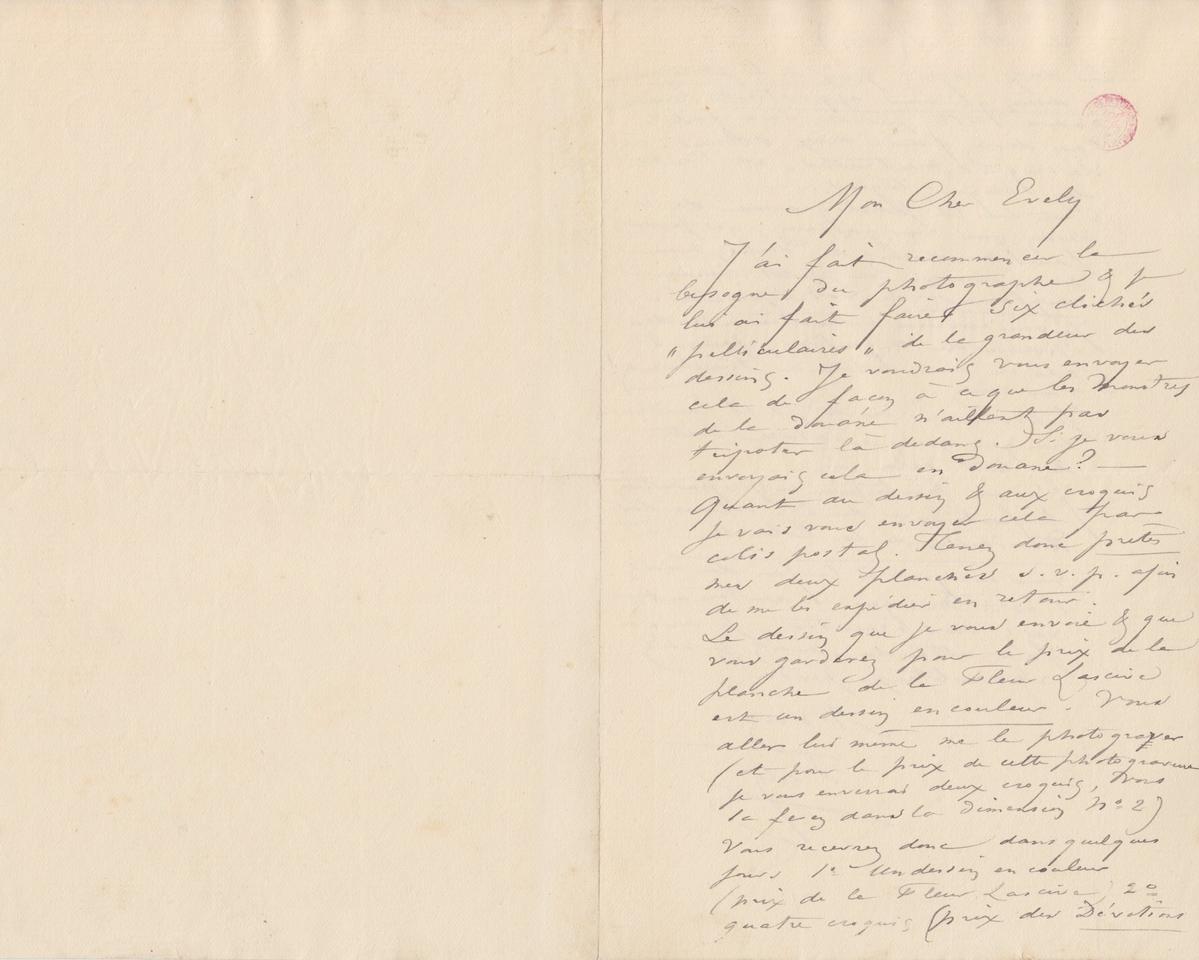 Mon Cher Evely
J'ai fait recommencer la
besogne du photographe & je
lui ai fait faire six clichés
"pelliculaires" de la grandeur des
dessins. Je voudrais vous envoyer
cela de façon à ce que les monstres
de la douane n'aillent pas
tripoter là dedans. Si je vous
envoyais cela en Douane? —
Quant au dessin & aux croquis
Je vais vous envoyer cela par
colis postal. Tenez donc prêtes
mes deux planches s.v.p. afin
de me les expédier en retour.
Le dessin que je vous envoie & que
vous garderez pour le prix de la
planche de la Fleur Lascive
est un dessin en couleur. Vous
allez lui même me le photograver
(et pour le prix de cette photogravure
je vous enverrai deux croquis, Vous
la ferez dans la dimension No 2)
Vous recevrez donc dans quelques
jours 1o Un dessin en couleur
(prix de la Fleur Lascive) 2o
quatre croquis (prix des Dévotions